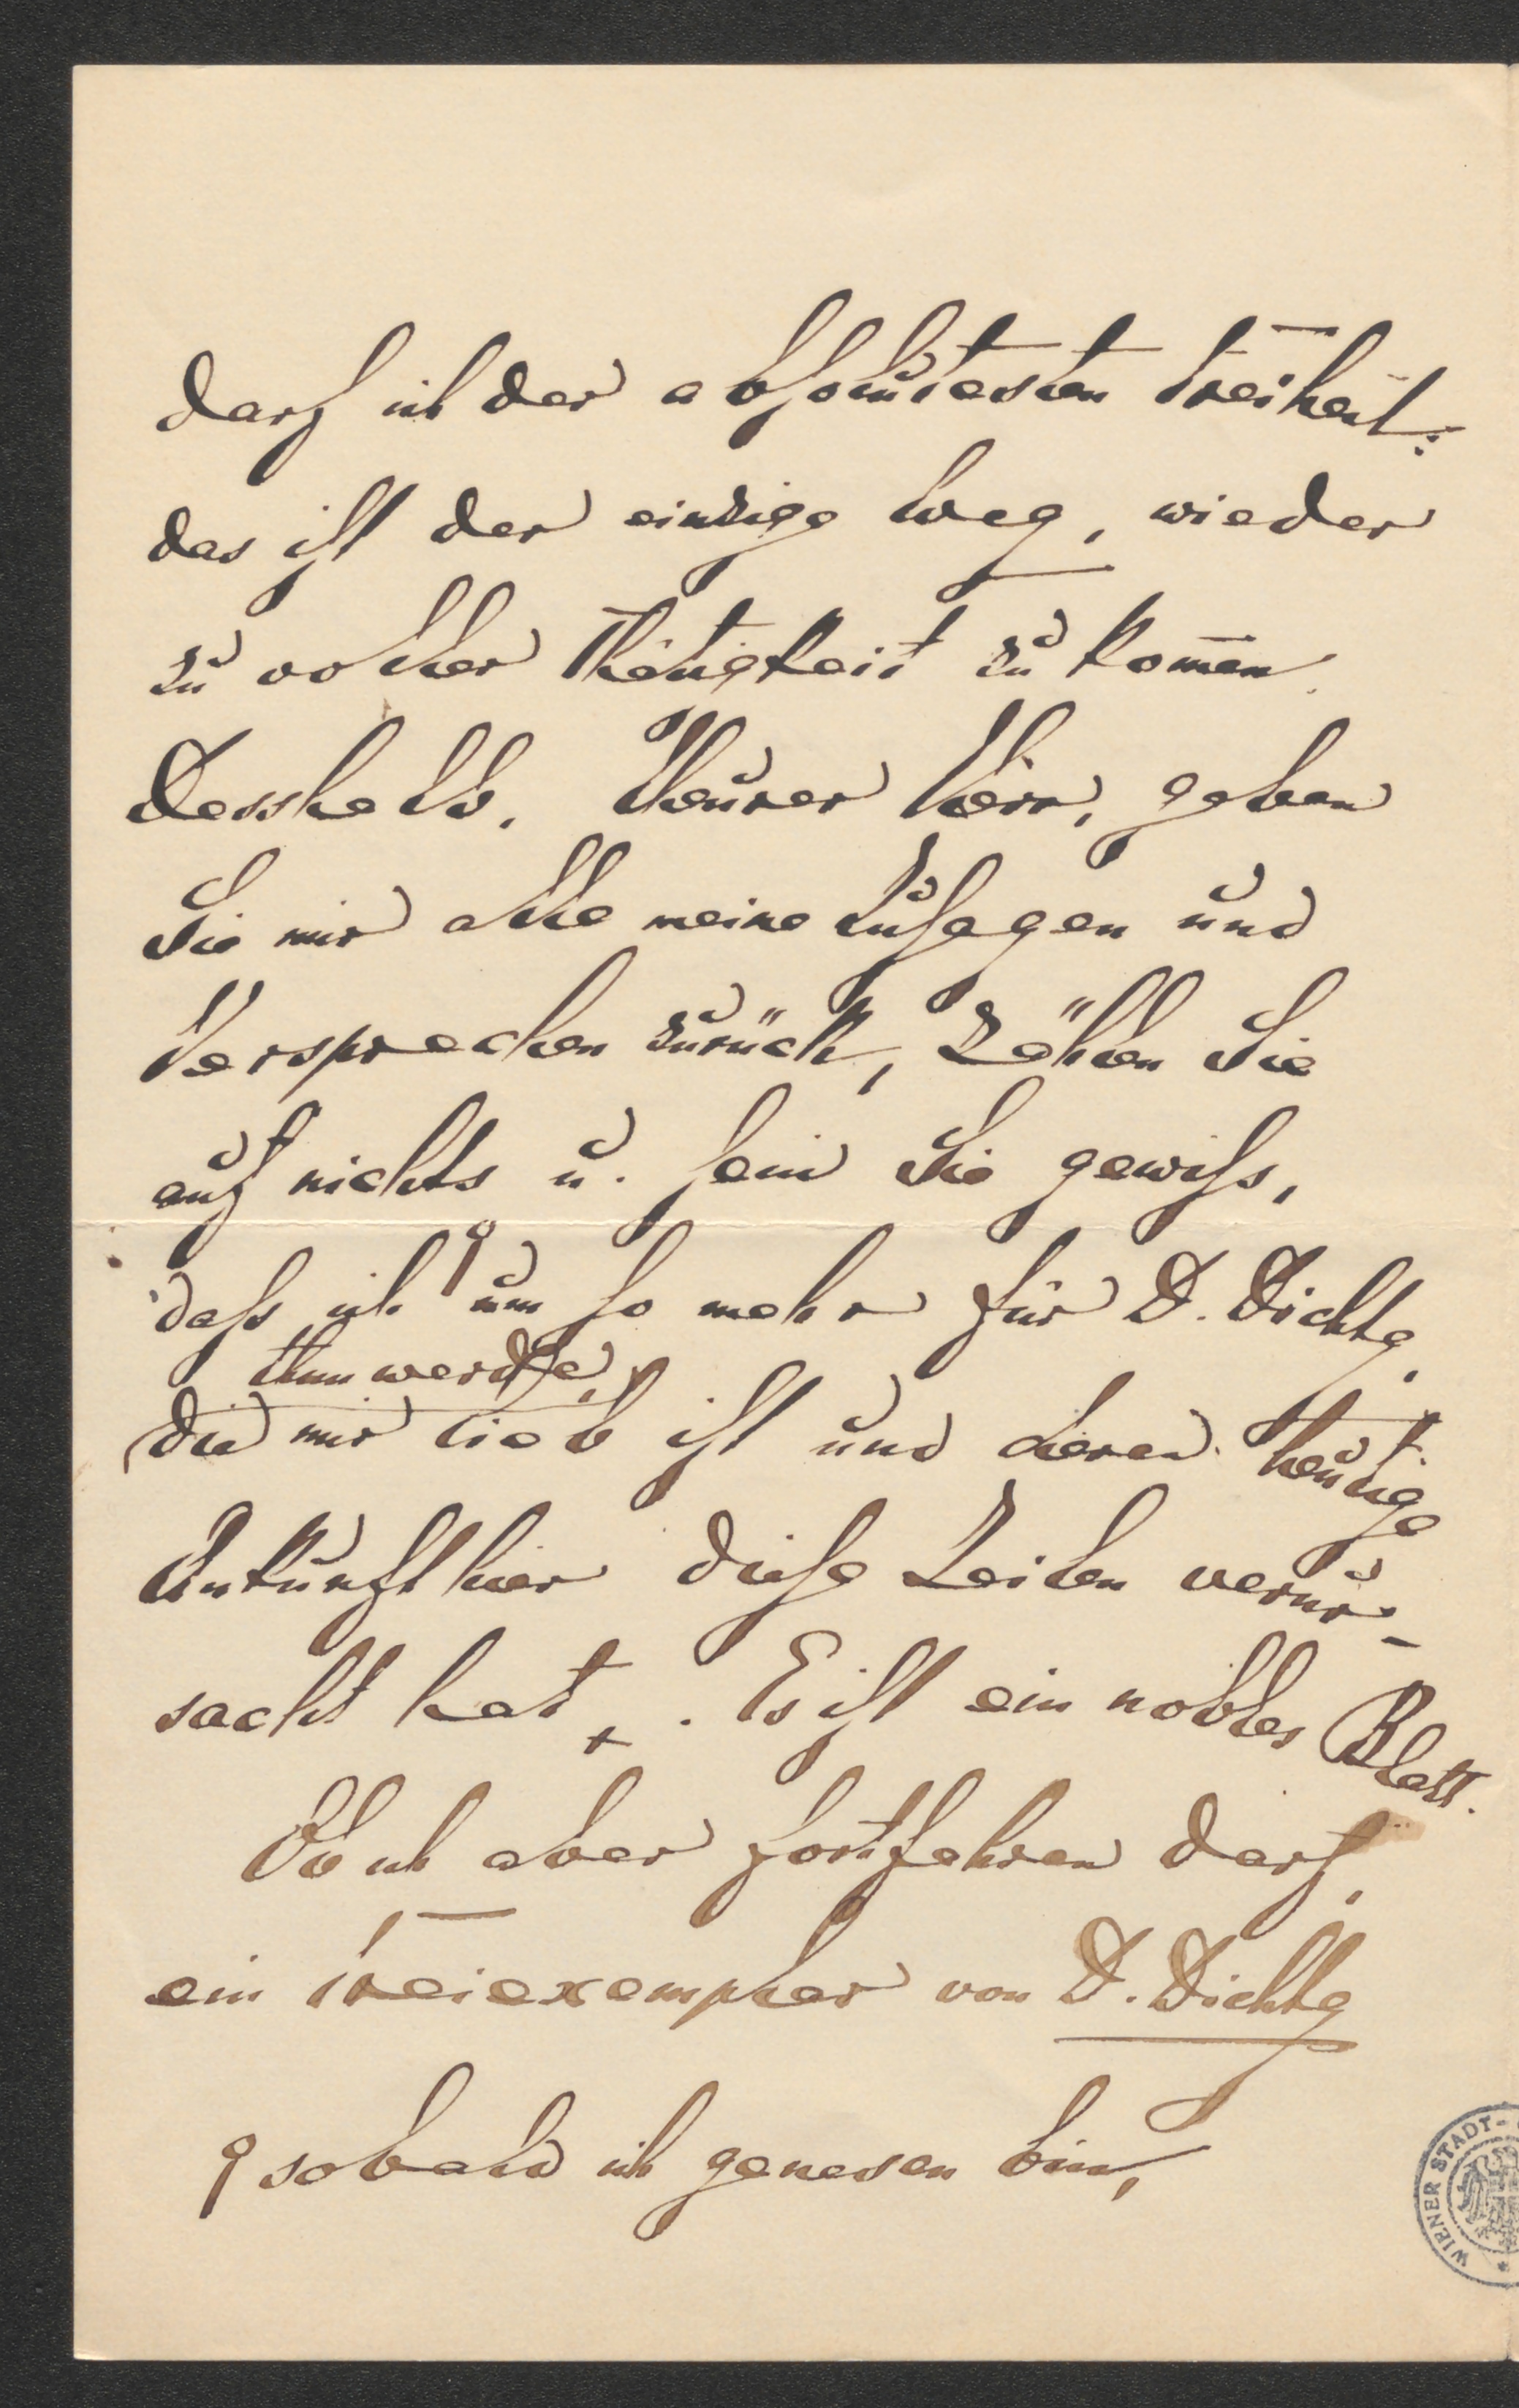 darf ich der absolutesten Freiheit:
das ist der einzige Weg, wieder
zu voller Thätigkeit zu kom̅en.
Desshalb, theurer Herr, geben
Sie mir alle meine Zusagen und
Versprechen zurück, zählen Sie
auf nichts u. sein Sie gewiss,
dass ich um so mehr für D. Dichtg,
thun werde,
die mir lieb ist und deren heutige
Ankunft hier diese Zeilen verur-
sacht hat. Es ist ein nobles Blatt.
Ob ich aber fortfahren darf,
ein Freiexemplar von D. Dichtg
sobald ich genesen bin,
WIENER STADT-